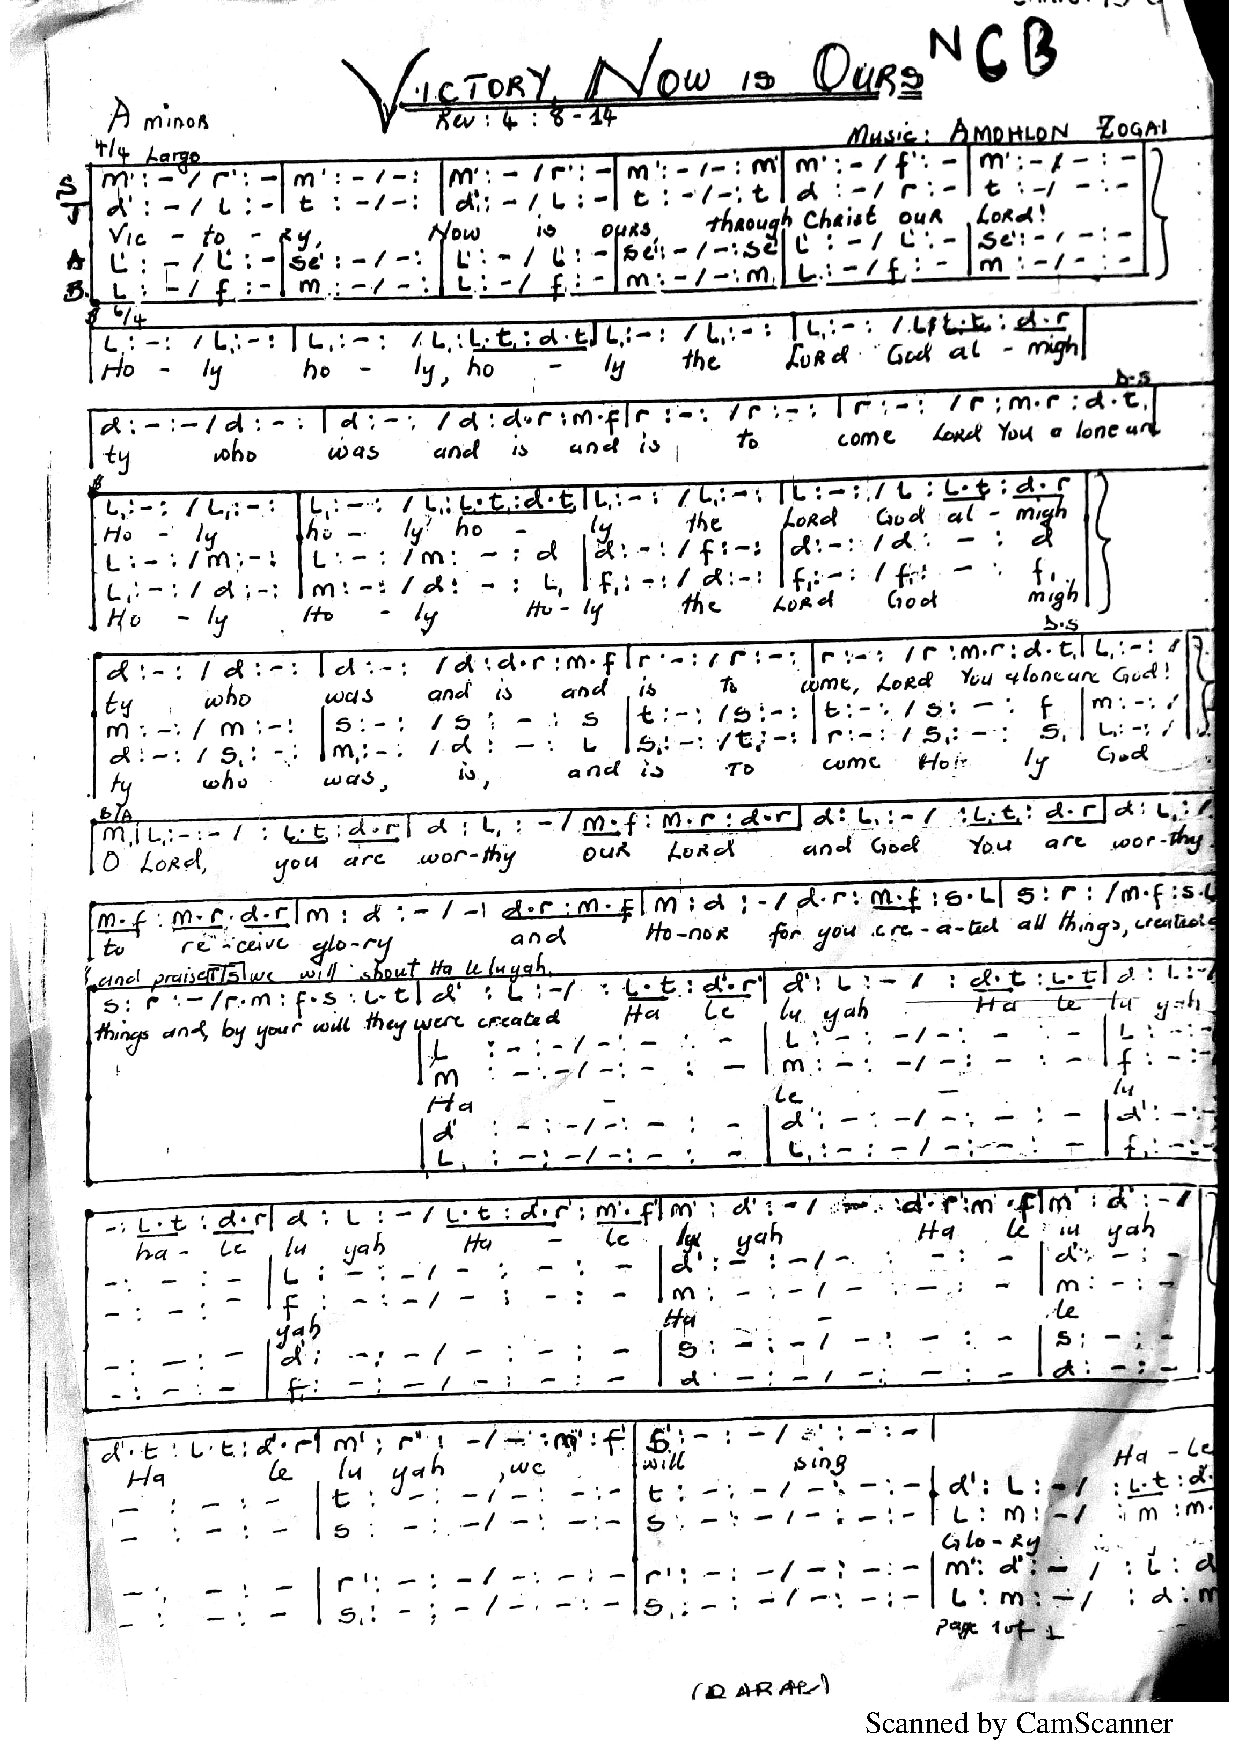 VICTORY NOW IS OURS NCB
Rev : 4 : 8 - 14
A minor
Music: AMOHLON ZOGAI
4/4 Largo
S m' : - / r' : - | m' : - / - : | m' : - / r' : - | m' : - / - : m' | m' : - / f' : - | m' : - / - : -
T d' : - / L : - | t : - / - : | d' : - / L : - | t : - / - : t | d : - / r : - | t : - / - : -
Vic - to - ry, Now is ours, through Christ our Lord!
A L' : - / L' : - | se' : - / - : | L' : - / L' : - | se' : - / - : se' | L' : - / L' : - | se' : - / - : -
B. L : - / f : - | m : - / - : | L : - / f : - | m : - / - : m | L : - / f : - | m : - / - : -
6/4
L, : - : / L, : - : | L, : - : / L, : L, . t, : d . t, | L, : - : / L, : - : | L, : - : / L, : L, . t, : d . r
Ho - ly ho - ly, ho - ly the Lord God al - migh
D.S
d : - : - / d : - : | d : - : / d : d . r : m . f | r : - : / r : - : | r : - : / r : m . r : d . t,
ty who was and is and is to come Lord You a lone are
L, : - : / L, : - : | L, : - : / L, : L, . t, : d . t, | L, : - : / L, : - : | L : - : / L : L . t : d . r
Ho - ly ho - ly ho - ly the Lord God al - migh
L : - : / m : - : | L : - : / m : - : d | d : - : / f : - : | d : - : / d : - : d
L, : - : / d : - : | m : - : / d : - : L, | f, : - : / d : - : | f, : - : / f, : - : f,
Ho - ly Ho - ly Ho - ly the Lord God migh
D.S
d : - : / d : - : | d : - : / d : d . r : m . f | r : - : / r : - : | r : - : / r : m . r : d . t, | L, : - : /
ty who was and is and is to come, Lord You alone are God!
m : - : / m : - : | s : - : / s : - : s | t : - : / s : - : | t : - : / s : - : f | m : - : /
d : - : / s, : - : | m, : - : / d : - : L | s, : - : / t, : - : | r : - : / s, : - : s, | L, : - : /
ty who was, is, and is To come Ho - ly God
6/A
m, | L, : - : - / : L, . t, : d . r | d : L, : - / m . f : m . r : d . r | d : L, : - / : L, . t, : d . r | d : L, : /
O Lord, you are wor-thy our Lord and God You are wor-thy
m . f : m . r . d . r | m : d : - / - | d . r : m . f | m : d : - / d . r : m . f : s . L | s : r : / m . f : s . L
to re-ceive glo-ry and Ho-nor for you cre-a-ted all things, created
and praises we will shout Ha le luyah.
s : r : - / r . m : f . s : L . t | d' : L : - / : L . t : d' . r' | d' : L : - / : d . t : L . t | d : L : - /
things and, by your will they were created Ha Le lu yah Ha le lu yah
L : - : - / - : - : - | L : - : - / - : - : - | L : - :
m : - : - / - : - : - | m : - : - / - : - : - | f : - :
Ha - Le - lu
d' : - : - / - : - : - | d' : - : - / - : - : - | d' : - : -
L, : - : - / - : - : - | L, : - : - / - : - : - | f, : - : -
- : L . t : d . r | d : L : - / L . t : d . r' : m' . f' | m' : d' : - / d' . r' : m' . f | m' : d' : - /
ha - le lu yah Ha - le yah Ha le lu yah
- : - : - | L : - : - / - : - : - | d' : - : - / - : - : - | d' - : -
- : - : - | f : - : - / - : - : - | m : - : - / - : - : - | m : - : -
yah Ha - le
- : - : - | d : - : - / - : - : - | s : - : - / - : - : - | s : - : -
- : - : - | f, : - : - / - : - : - | d - : - / - : - : - | d : - : -
d' . t : L . t : d' . r' | m' : r' : - / - : m' : f' | s' : - : - / - : - : - |
Ha le lu yah, we will sing Ha - Le
- : - : - | t : - : - / - : - : - | t : - : - / - : - : - | d' : L : - / : L . t : d .
- : - : - | s : - : - / - : - : - | s : - : - / - : - : - | L : m : - / : m : m .
Glo-ry
- : - : - | r' : - : - / - : - : - | r' : - : - / - : - : - | m' : d' : - / : L : d
- : - : - | s, : - : - / - : - : - | s, : - : - / - : - : - | L : m : - / : d : m
Page 1 of 1
Scanned by CamScanner